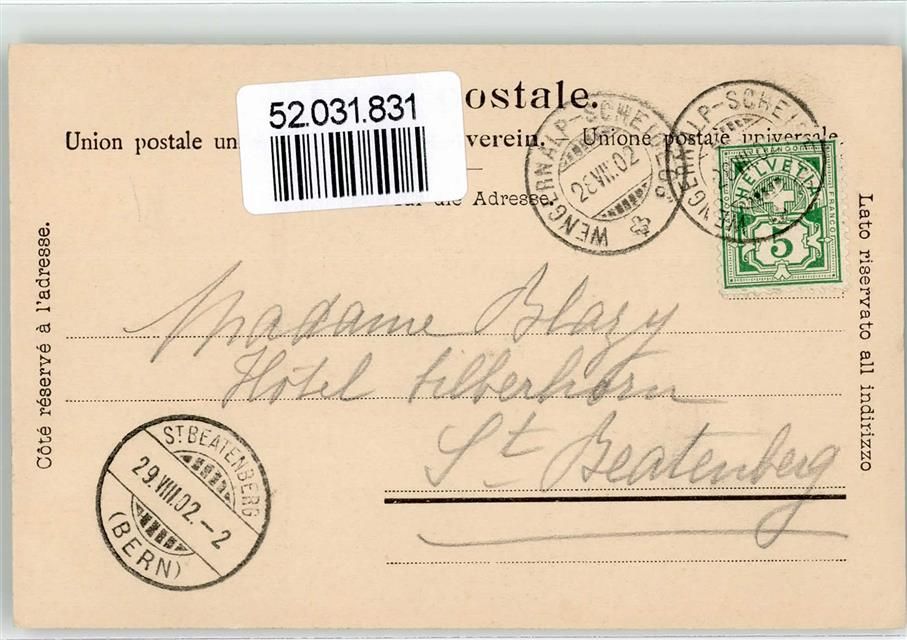 52.031.831
ostale.
Union postale un verein. Unione postale universale
für die Adresse.
WENGERNALP-SCHEIDEGG
VIII.02
WENGERNALP-SCHEI
VIII
FRANCO
HELVETIA
FRANCO
5
Côté réservé à l'adresse.
Lato riservato all indirizzo
Madame Blazy
Hôtel Silberhorn
St Beatenberg
ST BEATENBERG
29.VIII.02.-2
(BERN)